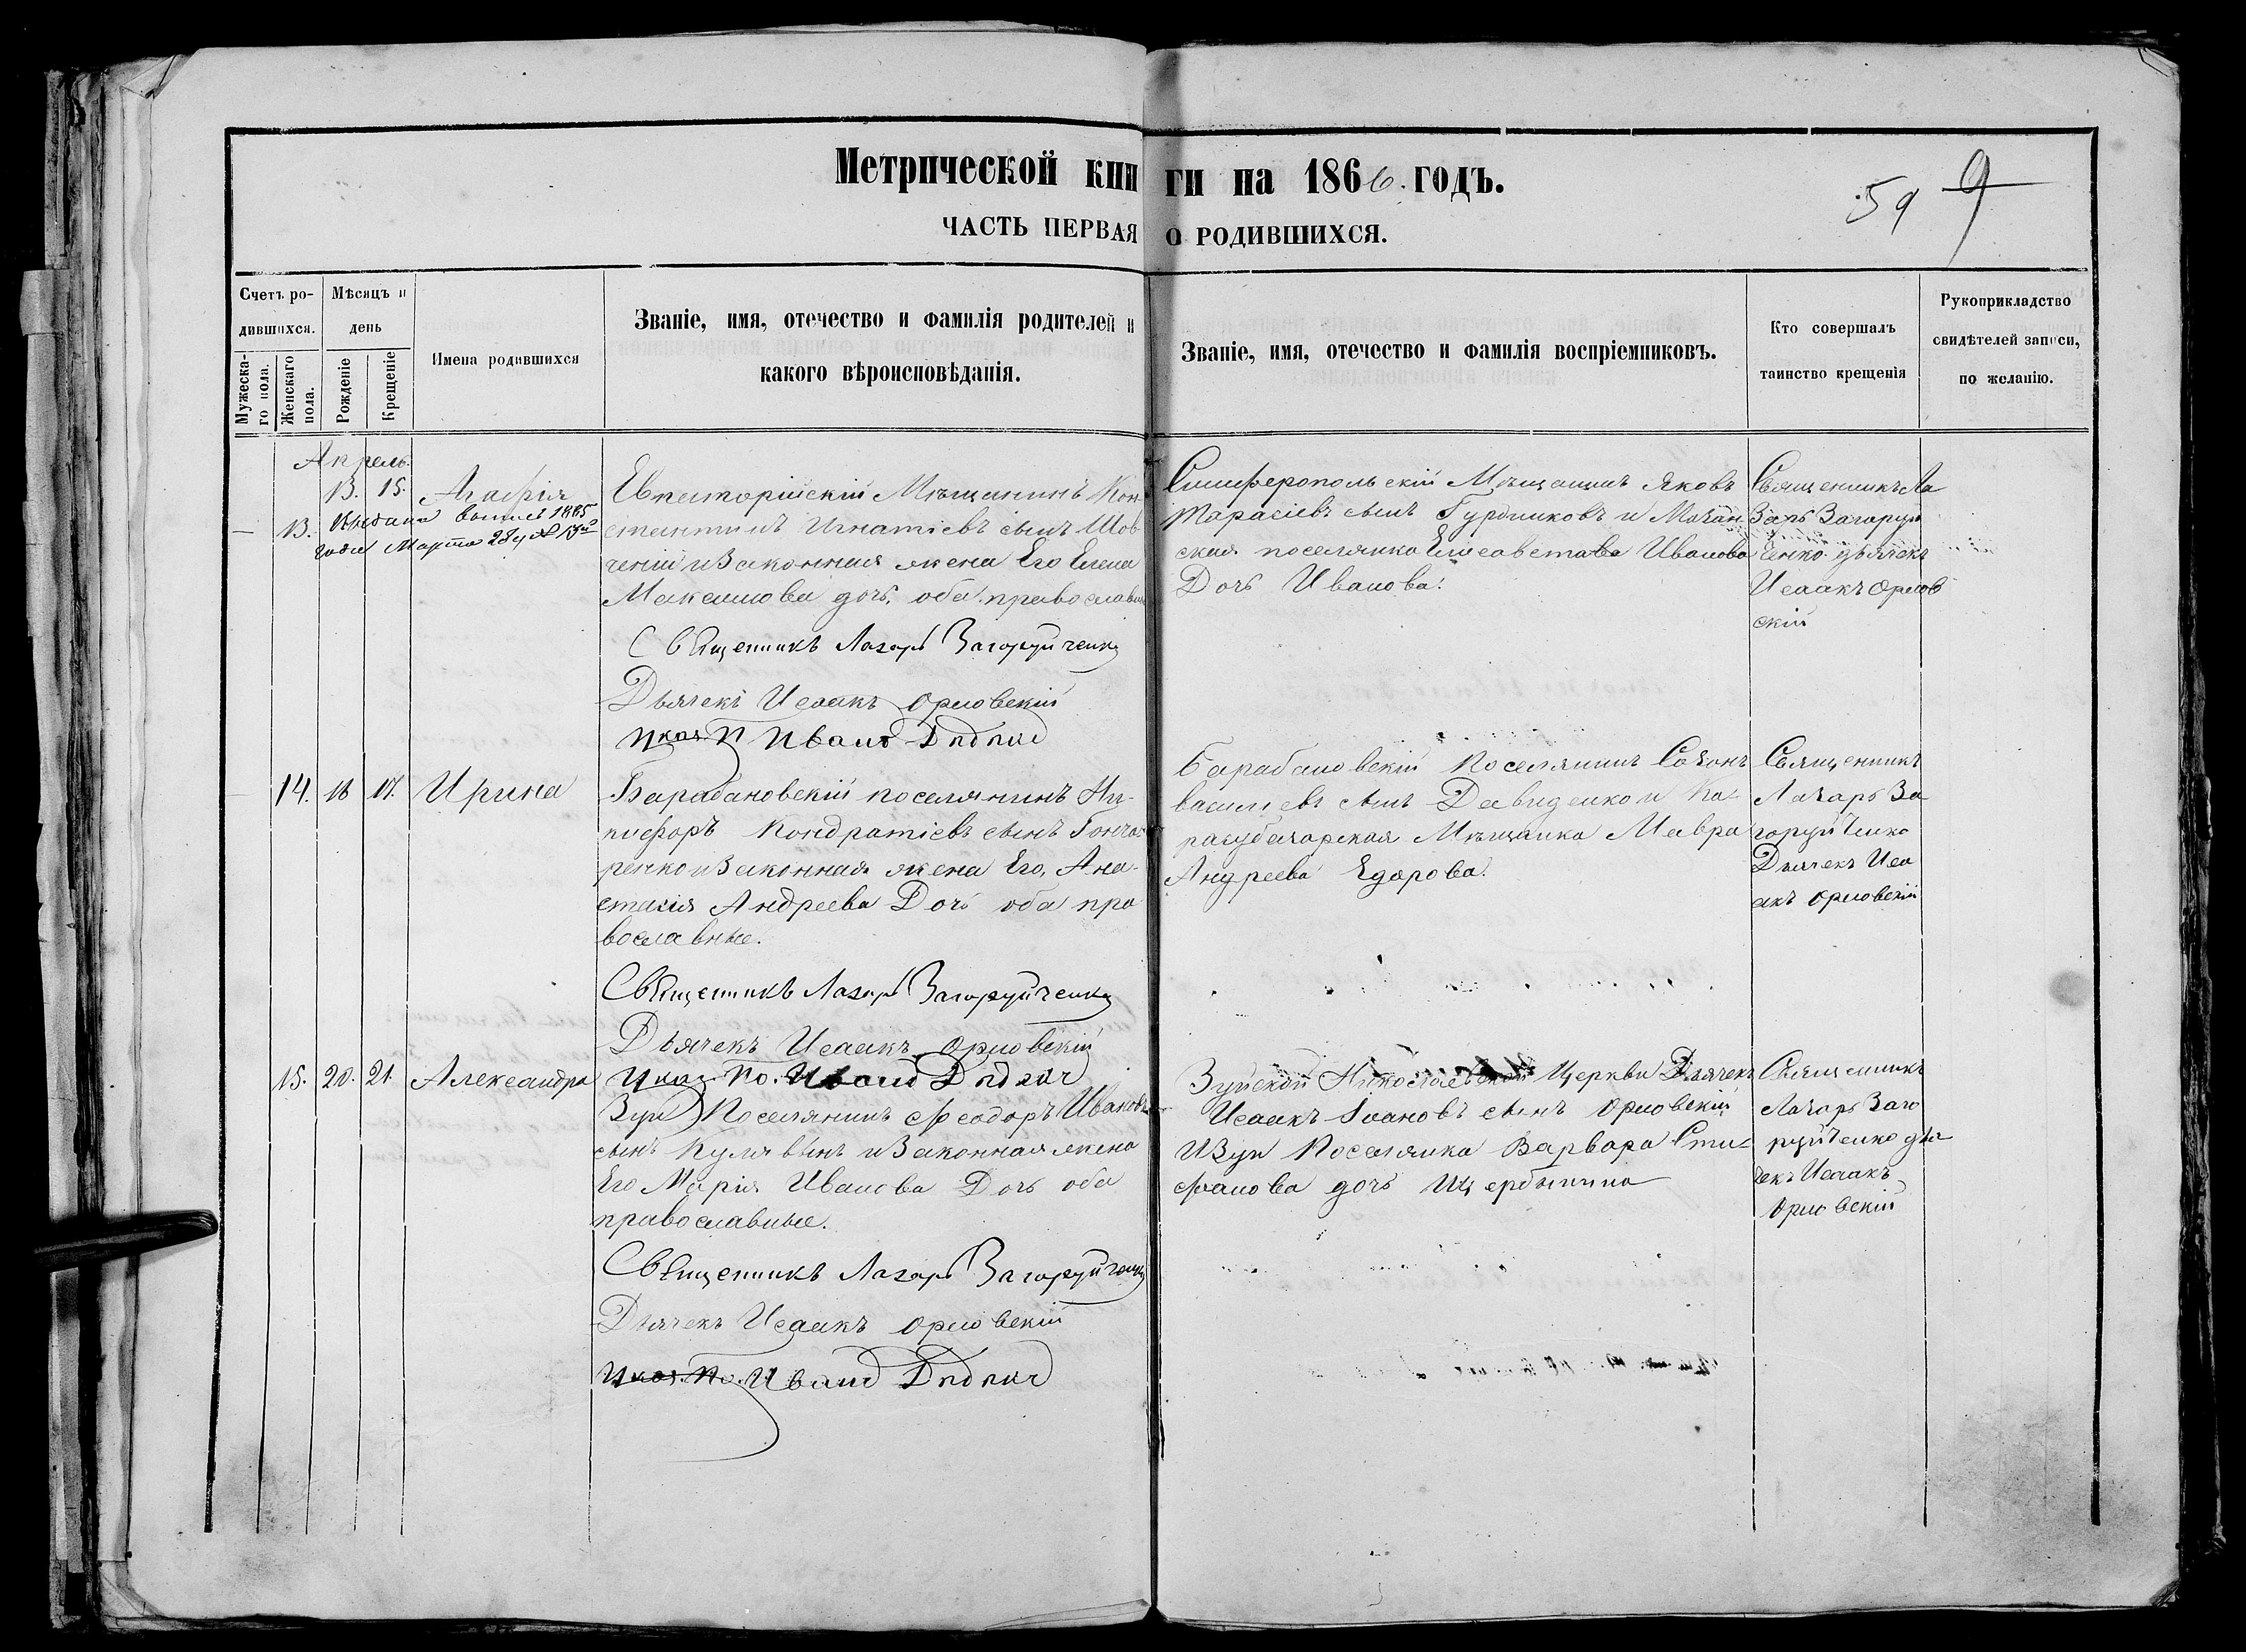 Метрической книги на 1866. годъ.
59 9
ЧАСТЬ ПЕРВАЯ О РОДИВШИХСЯ.
Счетъ родившихся.
Мужескаго пола.
Женскаго пола.
Мѣсяцъ и день
Рожденіе
Крещеніе
Имена родившихся
Званіе, имя, отечество и фамилія родителей и
какого вѣроисповѣданія.
Званіе, имя, отечество и фамилія воспріемниковъ.
Кто совершалъ
таинство крещенія
Рукоприкладство
свидѣтелей записи,
по желанію.
Апрель.
13. 13. 15. Агафія
года Марта 28 №
Евпаторійскій Мѣщанинъ Кон-
стантинъ Игнатіевъ сынъ Шов-
и Законная жена Его Елена
Максимова дочь, оба православн
Священникъ Лазарь Загоруйченко
Дьячекъ Исаакъ Орловскій
Иванъ
Симферопольскій Мѣщанинъ Яковъ
Тарасіевъ сынъ Гурдиковъ и Мазан-
ская поселянка Елисавета Иванова
Дочь Иванова.
Священникъ Ла
зарь Загоруй
ченко дьячекъ
Исаакъ Орлов
скій
14. 16 17. Ирина
Барабановскій поселянинъ Ни-
кифоръ Кондратіевъ сынъ Гонча-
ренко и Законная жена Его, Ана-
стасія Андреева Дочь оба пра
вославные.
Священникъ Лазарь Загоруйченко
Дьячекъ Исаакъ Орловскій
Иванъ
Барабановскій Поселянинъ Созонъ
васильевъ сынъ Давиденко и Ка-
расубазарская Мѣщанка Мавра
Андреева Егорова.
Священникъ
Лазарь За
горуйченко
Дьячекъ Иса
акъ Орловскій
15. 20. 21. Александра
Зуи Поселянинъ Феодоръ Ивановъ
сынъ и Законная жена
Его Марія Иванова Дочь оба
православные.
Священникъ Лазарь Загоруйченко
Дьячекъ Исаакъ Орловскій
Иванъ
Зуйской Николаевской Церкви Дьячекъ
Исаакъ Іоановъ сынъ Орловскій
и Зуи Поселянка Варвара Сти-
фанова дочь Щербинина
Священникъ
Лазарь Заго
руйченко дья
чекъ Исаакъ
Орловскій